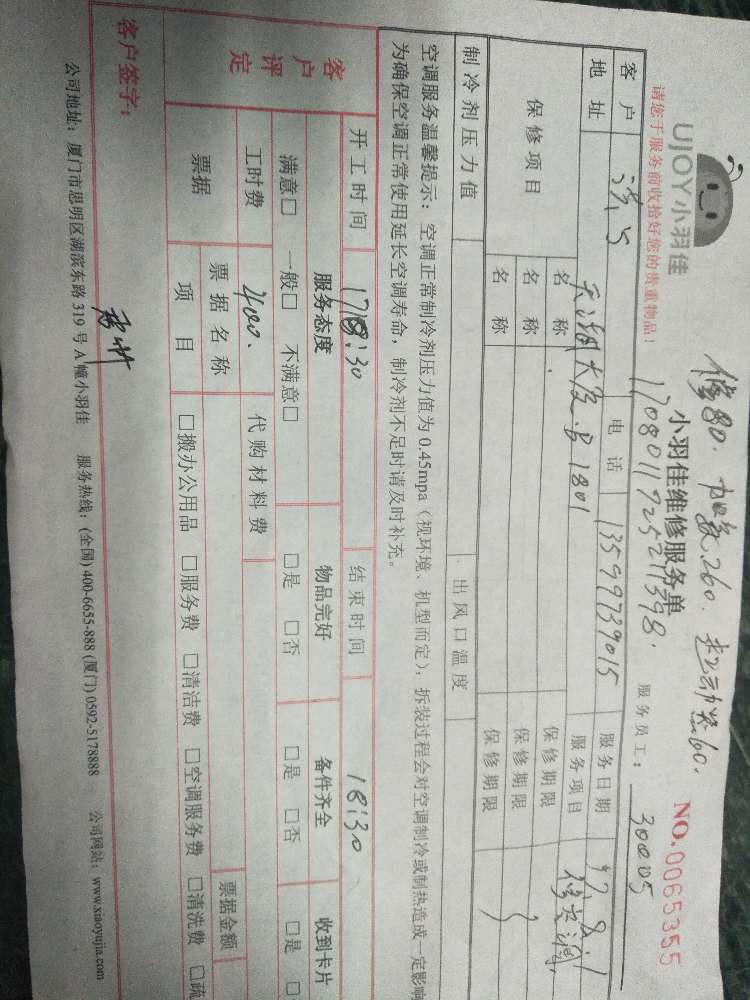 修80. 加氨260. 起动器60.
UJOY小羽佳
小羽佳维修服务单
NO.0065355
1708011925211398.
请您于服务前收拾好您的贵重物品！
服务员工：30005
客户 电话 13599739015 服务日期
地址 天湖大厦 1801 服务项目
保修项目 名称 保修期限
名称 保修期限
名称 保修期限
制冷剂压力值 出风口温度
空调服务温馨提示：空调正常制冷剂压力值为0.45mpa（视环境、机型而定），拆装过程会对空调制冷或制热造成一定影响
为确保空调正常使用延长空调寿命，制冷剂不足时请及时补充。
开工时间 17:30 结束时间 18:30
客户评定 服务态度 物品完好 备件齐全 收到卡片
满意□ 一般□ 不满意□ □是 □否 □是 □否 □是 □
工时费 400. 代购材料费
票据 票据名称 票据金额
项目 □搬办公用品 □服务费 □清洁费 □空调服务费 □清洗费 □疏
客户签字：
公司地址：厦门市思明区湖滨东路319号A幢小羽佳 服务热线：(全国) 400-6655-888 (厦门) 0592-5178888 公司网站：www.xiaoyujia.com